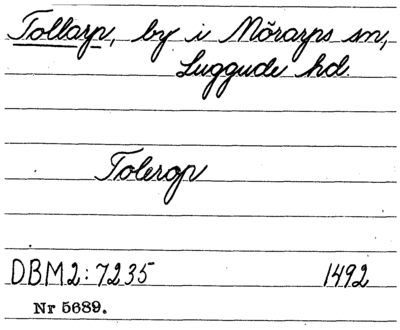 Tollarp, by i Mörarps sn,
Luggude hd.
Tolerop
DBM2:7235 1492
Nr 5689.